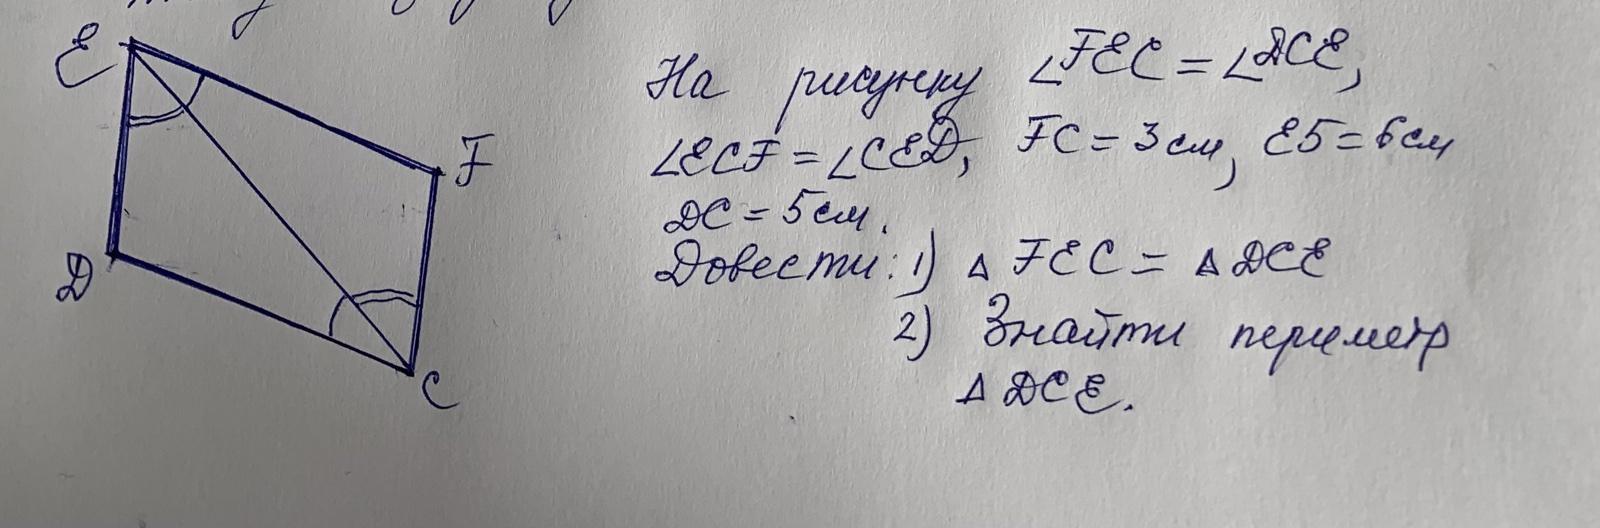 E
F
D
C
На рисунку ∠FEC = ∠DCE,
∠ECF = ∠CED, FC = 3 см, E5 = 6 см
DC = 5 см.
Довести: 1) △ FEC = △ DCE
2) Знайти периметр
△ DCE.